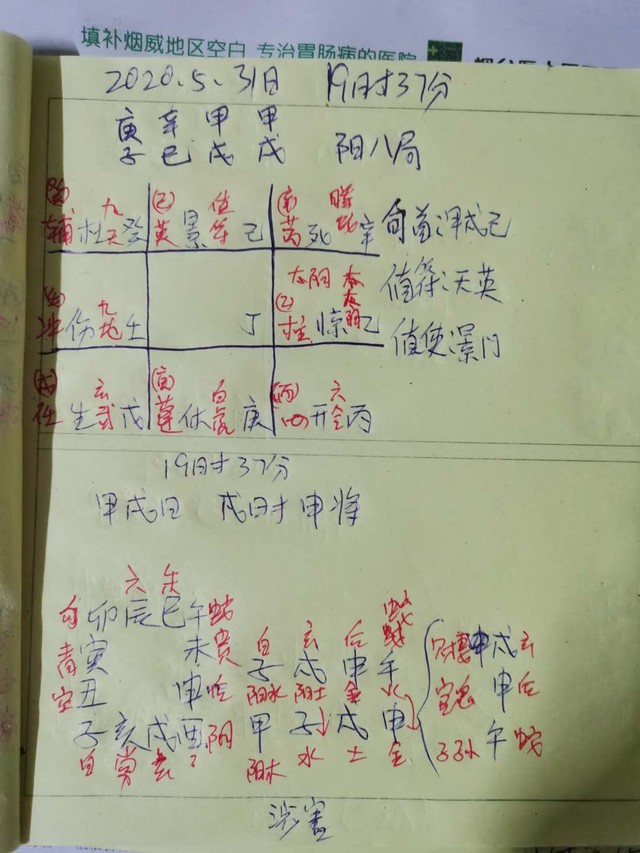 填补烟威地区空白 专治胃肠病的医院
2020.5.31日 19时37分
庚 辛 甲 甲
子 巳 戌 戌 阳八局
九 值 螣
辅 杜 天 癸 英 景 符 己 芮 死 蛇 辛 旬首:甲戌己
太阴 值符:天英
冲 伤 九地 壬 丁 柱 惊 乙 值使:景门
生 玄武 戊 蓬 休 白虎 庚 心 开 六合 丙
19时37分
甲戌日 戌时申将
六 朱
勾 卯 辰 巳 午 蛇
青 寅 未 贵 子 戌 申 午 申 戌 玄
空 丑 申 后 阳水 阳土 金 火 官鬼 申 后
子 亥 戌 酉 阴 甲 子 戌 申 子孙 午 蛇
白 常 玄 阳木 水 土 金
涉害